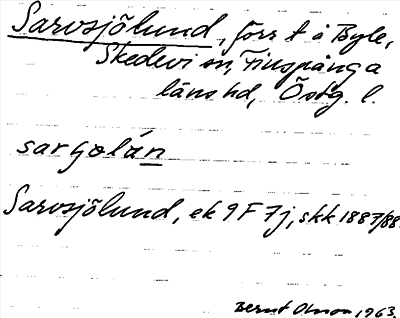 Sarvsjölund, förr t å Byle,
Skedevi sn, Finspånga
läns hd, Östg. l.
sarʃɷlán
Sarvsjölund, ek 9F 7j, skk 1887/88.
Bernt Olsson, 1963.